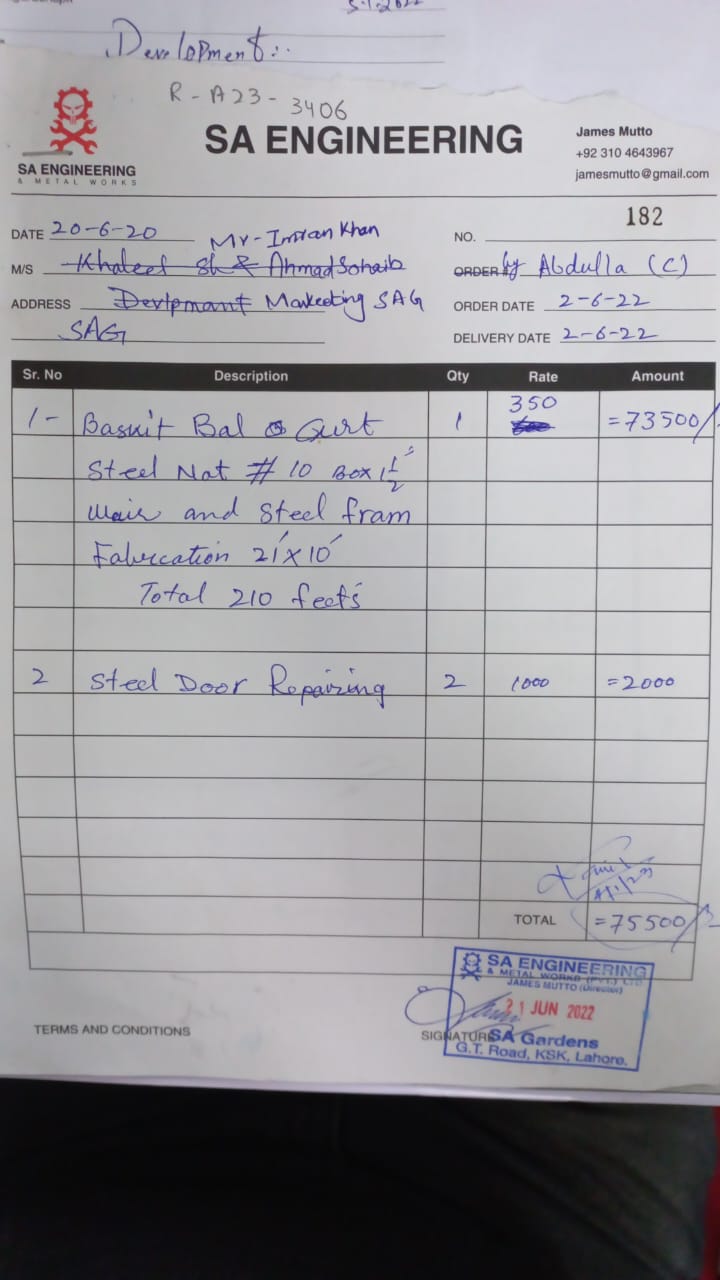 5-1-2022
Development:.
R-A23-3406
SA ENGINEERING
& METAL WORKS
SA ENGINEERING
James Mutto
+92 310 4643967
jamesmutto@gmail.com
182
DATE 20-6-20
Mr-Imran Khan
NO.
M/S Khaleel Sh & Ahmad Sohaib
ORDER by Abdulla (C)
ADDRESS Devlpmant Marketing SAG
ORDER DATE 2-6-22
SAG
DELIVERY DATE 2-6-22
Sr. No Description Qty Rate Amount
1- Basuit Bal Curt 1 350 =73500/-
Steel Nat # 10 Box 1 1/2"
Wair and Steel fram
Fabrication 21'x10'
Total 210 feet's
2 Steel Door Repairing 2 1000 =2000
TOTAL =75500/-
SA ENGINEERING
& METAL WORKS (PVT) LTD
JAMES MUTTO (Director)
21 JUN 2022
SIGNATURE SA Gardens
G.T. Road, KSK, Lahore.
TERMS AND CONDITIONS